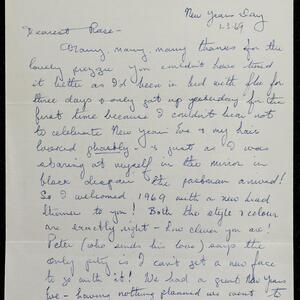 New Years Day
1.3.69
Dearest Rose -
Many, many, many thanks for the
lovely puzzie. You couldn't have timed
it better as I'd been in bed with flu for
three days & only got up yesterday for the
first time because I couldn't bear not
to celebrate New Year Eve & my hair
looked ghastly - & just as I was
staring at myself in the mirror in
black despair the postman arrived!
So I welcomed 1969 with a new head
thanks to you! Both the style & colour
are exactly right - how clever you are!
Peter (who sends his love) says the
only pity is I can't get a new face
to go with it! We had a great New Years
Eve - having nothing planned we went to